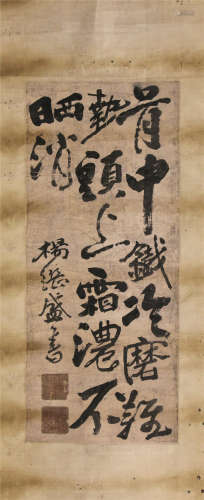 中鐵冷磨難
熱頭上霜濃不
晒消
楊繼盛書